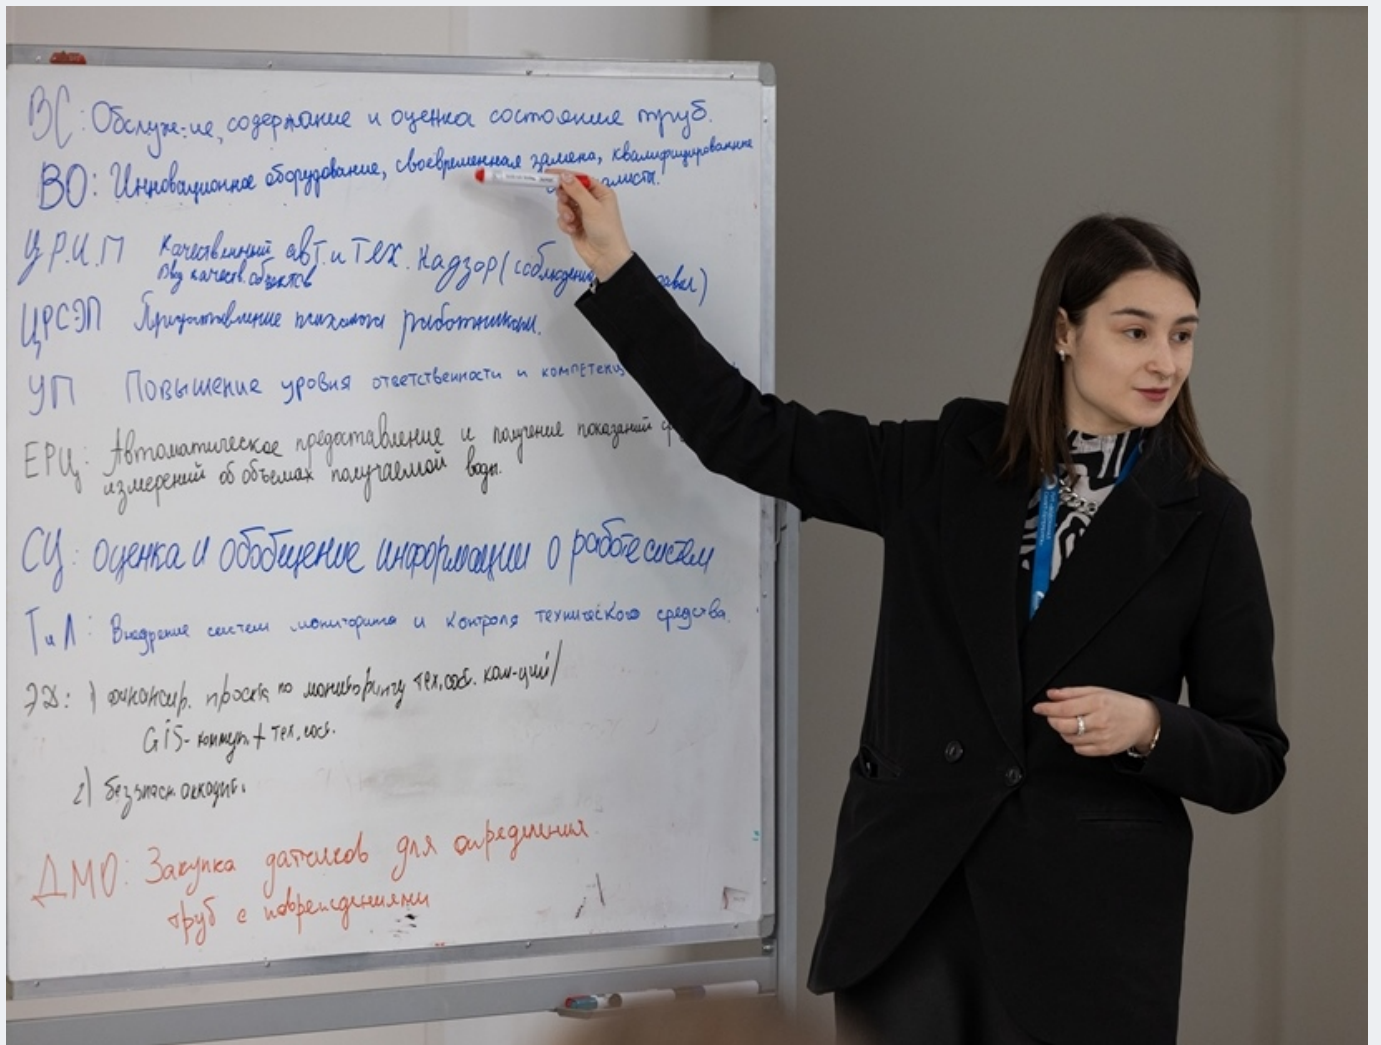 ВС: Обслуж-ие, содержание и оценка состояние труб.
ВО: Инновационное оборудование, своевременная замена, квалифицированные
Ц.Р.И.П Качественный авт. и тех. надзор (
Пвд качеств. объектов
ЦРСЭП Предоставление психолога работникам.
УП Повышение уровня ответственности и
ЕРЦ: Автоматическое предоставление и получение показаний
измерений об объемах получаемой воды.
СЦ: оценка и обобщение информации о работе систем
Т и Л: Внедрение систем мониторинга и контроля технического средства.
ЭД: 1) финансир. проекта по мониторингу тех. сост. ком-ций/
GIS- коммун. + тех. сост.
2)
ДМО: Закупка датчиков для определения
труб с повреждениями